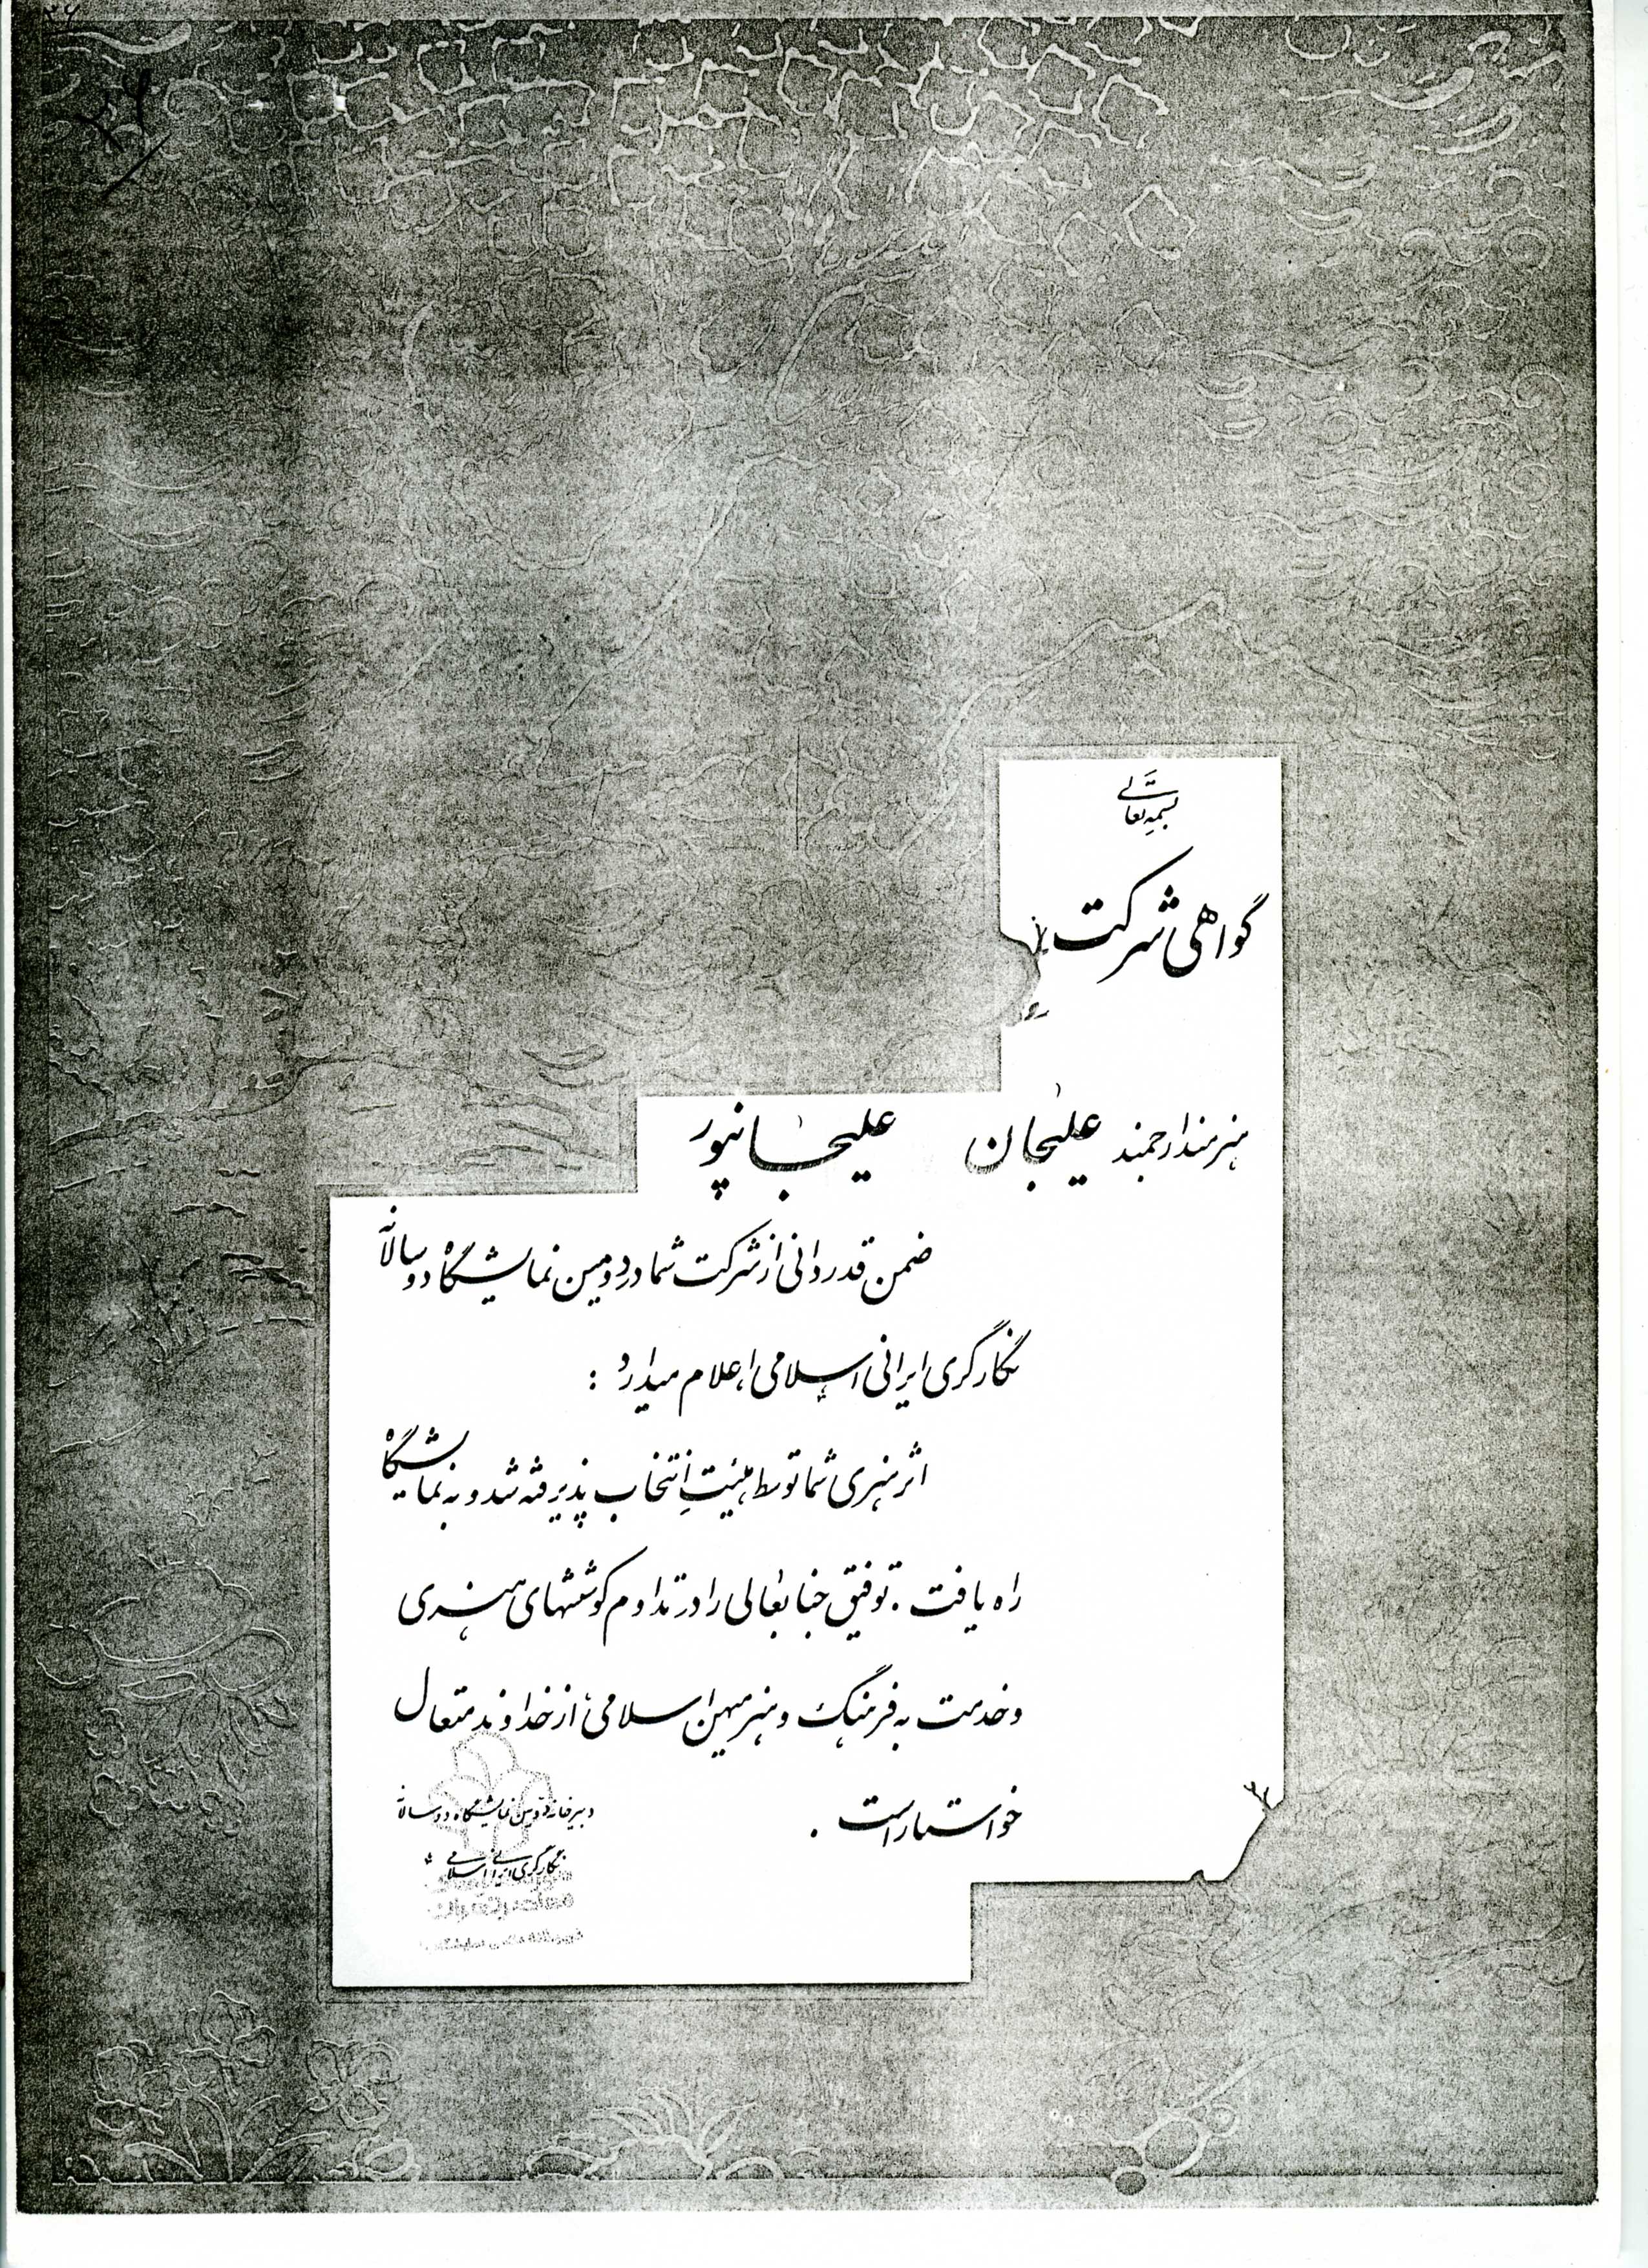 بسمه تعالی
گواهی شرکت
هنرمند ارجمند علیجان علیجانپور
ضمن قدردانی از شرکت شما در دومین نمایشگاه دو سالانه
نگارگری ایرانی اسلامی اعلام میدارد :
اثر هنری شما توسط هیئت انتخاب پذیرفته شد و به نمایشگاه
راه یافت . توفیق جنابعالی را در تداوم کوششهای هنری
و خدمت به فرهنگ و هنر میهن اسلامی از خداوند متعال
خواستار است .
دبیرخانه دومین نمایشگاه دو سالانه
نگارگری ایرانی اسلامی